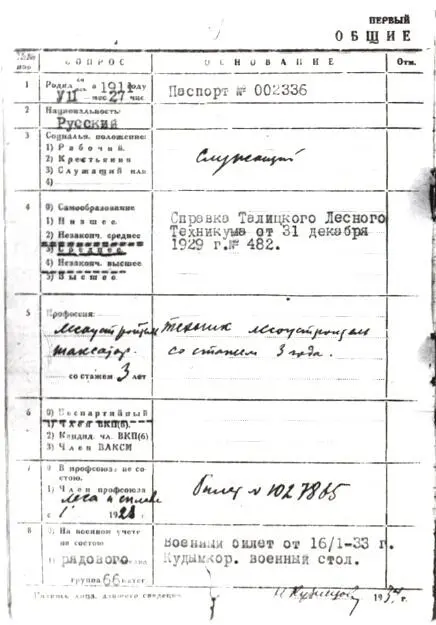 ПЕРВЫЙ
ОБЩИЕ
ВОПРОС ОСНОВАНИЕ Отм.
1 Родил в 1911 году
VII мес 27 чис Паспорт № 002336
2 Национальность
Русский
3 Социальн. положение:
1) Рабочий
2) Крестьянин
3) Служащий или служащий
4)
4 0) Самообразование
1) Низшее Справка Талицкого Лесного
2) Незаконч. среднее Техникума от 31 декабря
3) Среднее 1929 г. № 482.
4) Незаконч. высшее
5) Высшее
5 Профессия:
лесоустроитель техник лесоустроитель
таксатор. со стажем 3 года.
со стажем 3 лет
6 0) Беспартийный
1) Член ВКП(б)
2) Кандид. чл. ВКП(б)
3) Член ВЛКСМ
7 0) В профсоюзе не со-
стою.
1) Член профсоюза билет № 1027865
леса и сплава
с 1928 г.
8 0) На военном учете
не состою Военный билет от 16/1-33 г.
1) рядового Кудымкор. военный стол.
группа 66 катег.
Подпись лица, давшего сведения 1934 г.